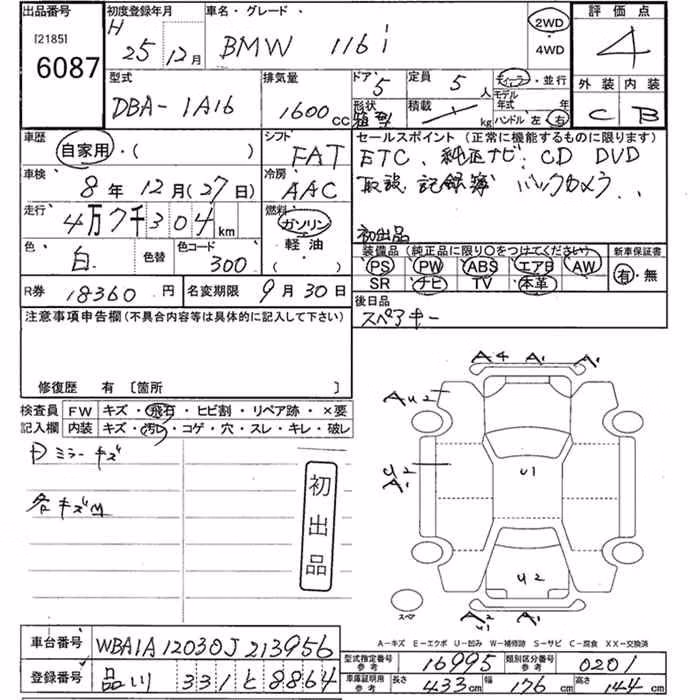 出品番号 初度登録年月 車名・グレード 評価点
[2185] 6087 H 25年 12月 BMW 116i 2WD・4WD 4
型式 排気量 ドア 定員 ディーラー・並行 外装 内装
DBA-1A16 1600cc 5 5人 モデル年式 年 C B
形状 積載 kg ハンドル 左 右
車歴 シフト セールスポイント (正常に機能するものに限ります)
自家用・( ) FAT ETC、純正ナビ、CD DVD
車検 冷房 取説 記録簿 バックカメラ
8年 12月(27日) AAC
走行 4万7千304km 燃料 ガソリン 初出品
軽油 ( )
色 白 色替 色コード 300 装備品 (純正品に限り○をつけてください) 新車保証書
PS PW ABS エアB AW 有・無
R券 18360円 名変期限 9月30日 SR ナビ TV 本革
注意事項申告欄(不具合内容等は具体的に記入して下さい) 後日品
スペアキー
修復歴 有 [箇所 ]
検査員 FW キズ・飛石・ヒビ割・リペア跡・×要
記入欄 内装 キズ・汚レ・コゲ・穴・スレ・キレ・破レ
ミラーキズ
各キズ
初出品
A4 A1 A1
AU2
U2
A1
U1
U2
A2
U1
A1
スペア
A-キズ E-エクボ U-凹み W-補修跡 S-サビ C-腐食 XX-交換済
車台番号 WBA1A12030J213956
型式指定番号 参考 16995 類別区分番号 参考 0201
登録番号 品川 331 と 8864
車庫証明用 参考 長さ 433cm 幅 176cm 高さ 144cm